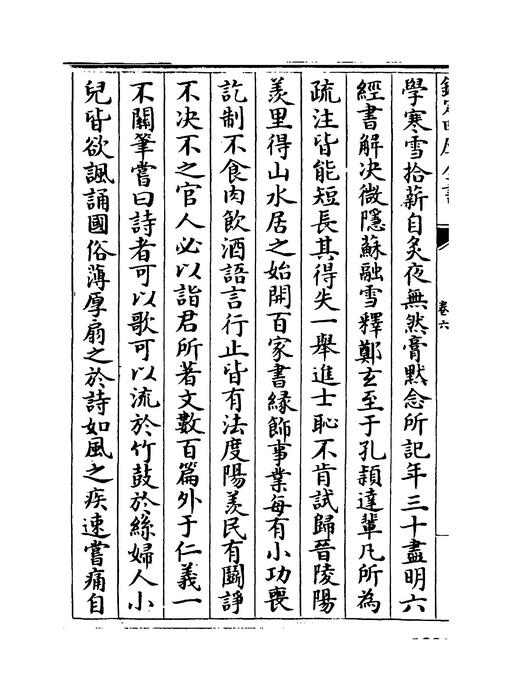 欽定四庫全書
卷六
學寒雪拾薪自炙夜無然膏黙念所記年三十盡明六
經書解决微隱蘇融雪釋鄭玄至于孔穎達輩凡所為
疏注皆能短長其得失一舉進士恥不肯試歸晉陵陽
羨里得山水居之始開百家書緣飾事業每有小功喪
訖制不食肉飲酒語言行止皆有法度陽羨民有鬭諍
不决不之官人必以詣君所著文數百篇外于仁義一
不關筆嘗曰詩者可以歌可以流於竹鼓於絲婦人小
兒皆欲諷誦國俗薄厚扇之於詩如風之疾速嘗痛自